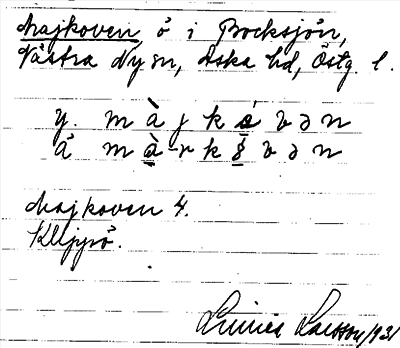 Majkoven ö i Bocksjön,
Västra Ny sn, Aska hd, Östg. l.
y. m à j k ó v ə n
ä m à r k ŏ v ə n
Majkoven 4.
Klipyö.
Linnéa Larsson/1931